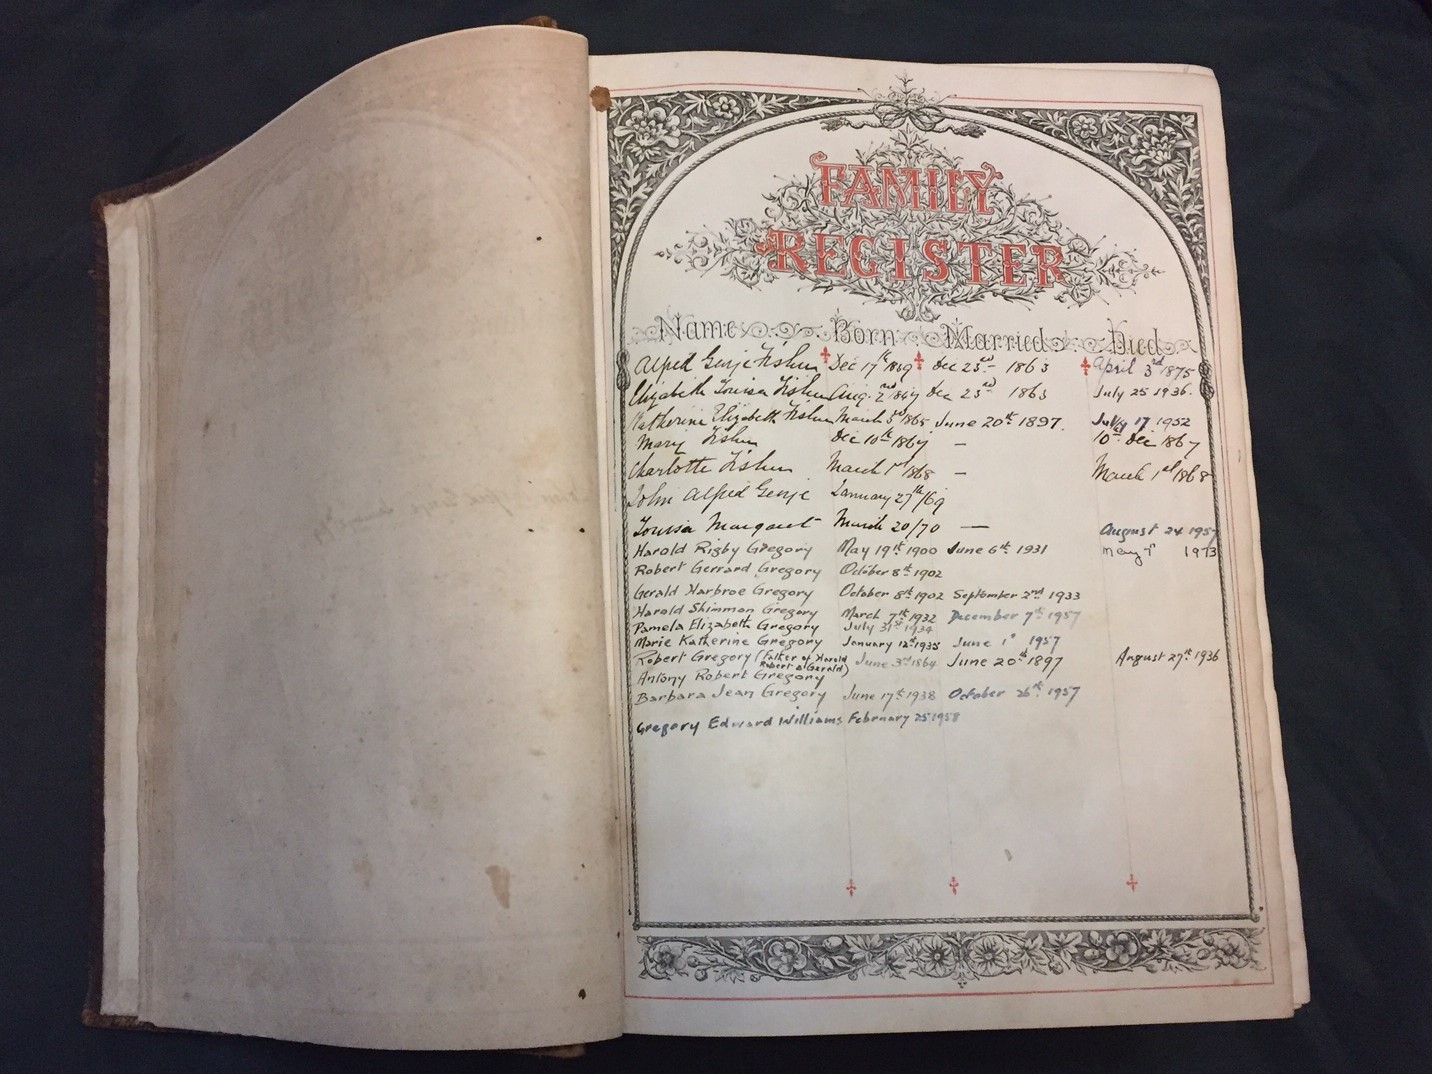 FAMILY
REGISTER
Name Born Married Died
Alfred Genje Fisher Dec 17th 1839 Dec 23rd 1863 April 3rd 1875
Elizabeth Louisa Fisher Aug. 2nd Dec 23rd 1863 July 25 1936.
Katherine Elizabeth Fisher March 3rd 1865 June 20th 1897. July 17 1952
Mary Fisher Dec 10th 1867 — 10th Dec 1867
Charlotte Fisher March 1st 1868 — March 1st 1868
John Alfred Genje January 27th/69
Louisa Margaret March 20/70 — August 24 1957
Harold Rigby Gregory May 19th 1900 June 6th 1931 May 1973
Robert Gerrard Gregory October 8th 1902
Gerald Harbroe Gregory October 8th 1902 September 2nd 1933
Harold Shimmon Gregory March 7th 1932 December 7th 1957
Pamela Elizabeth Gregory July 31st 1934
Marie Katherine Gregory January 12th 1935 June 1st 1957
Robert Gregory (Father of Harold Robert & Gerald) June 3rd 1864 June 20th 1897 August 27th 1936
Antony Robert Gregory
Barbara Jean Gregory June 17th 1938 October 26th 1957
Gregory Edward Williams February 25 1958